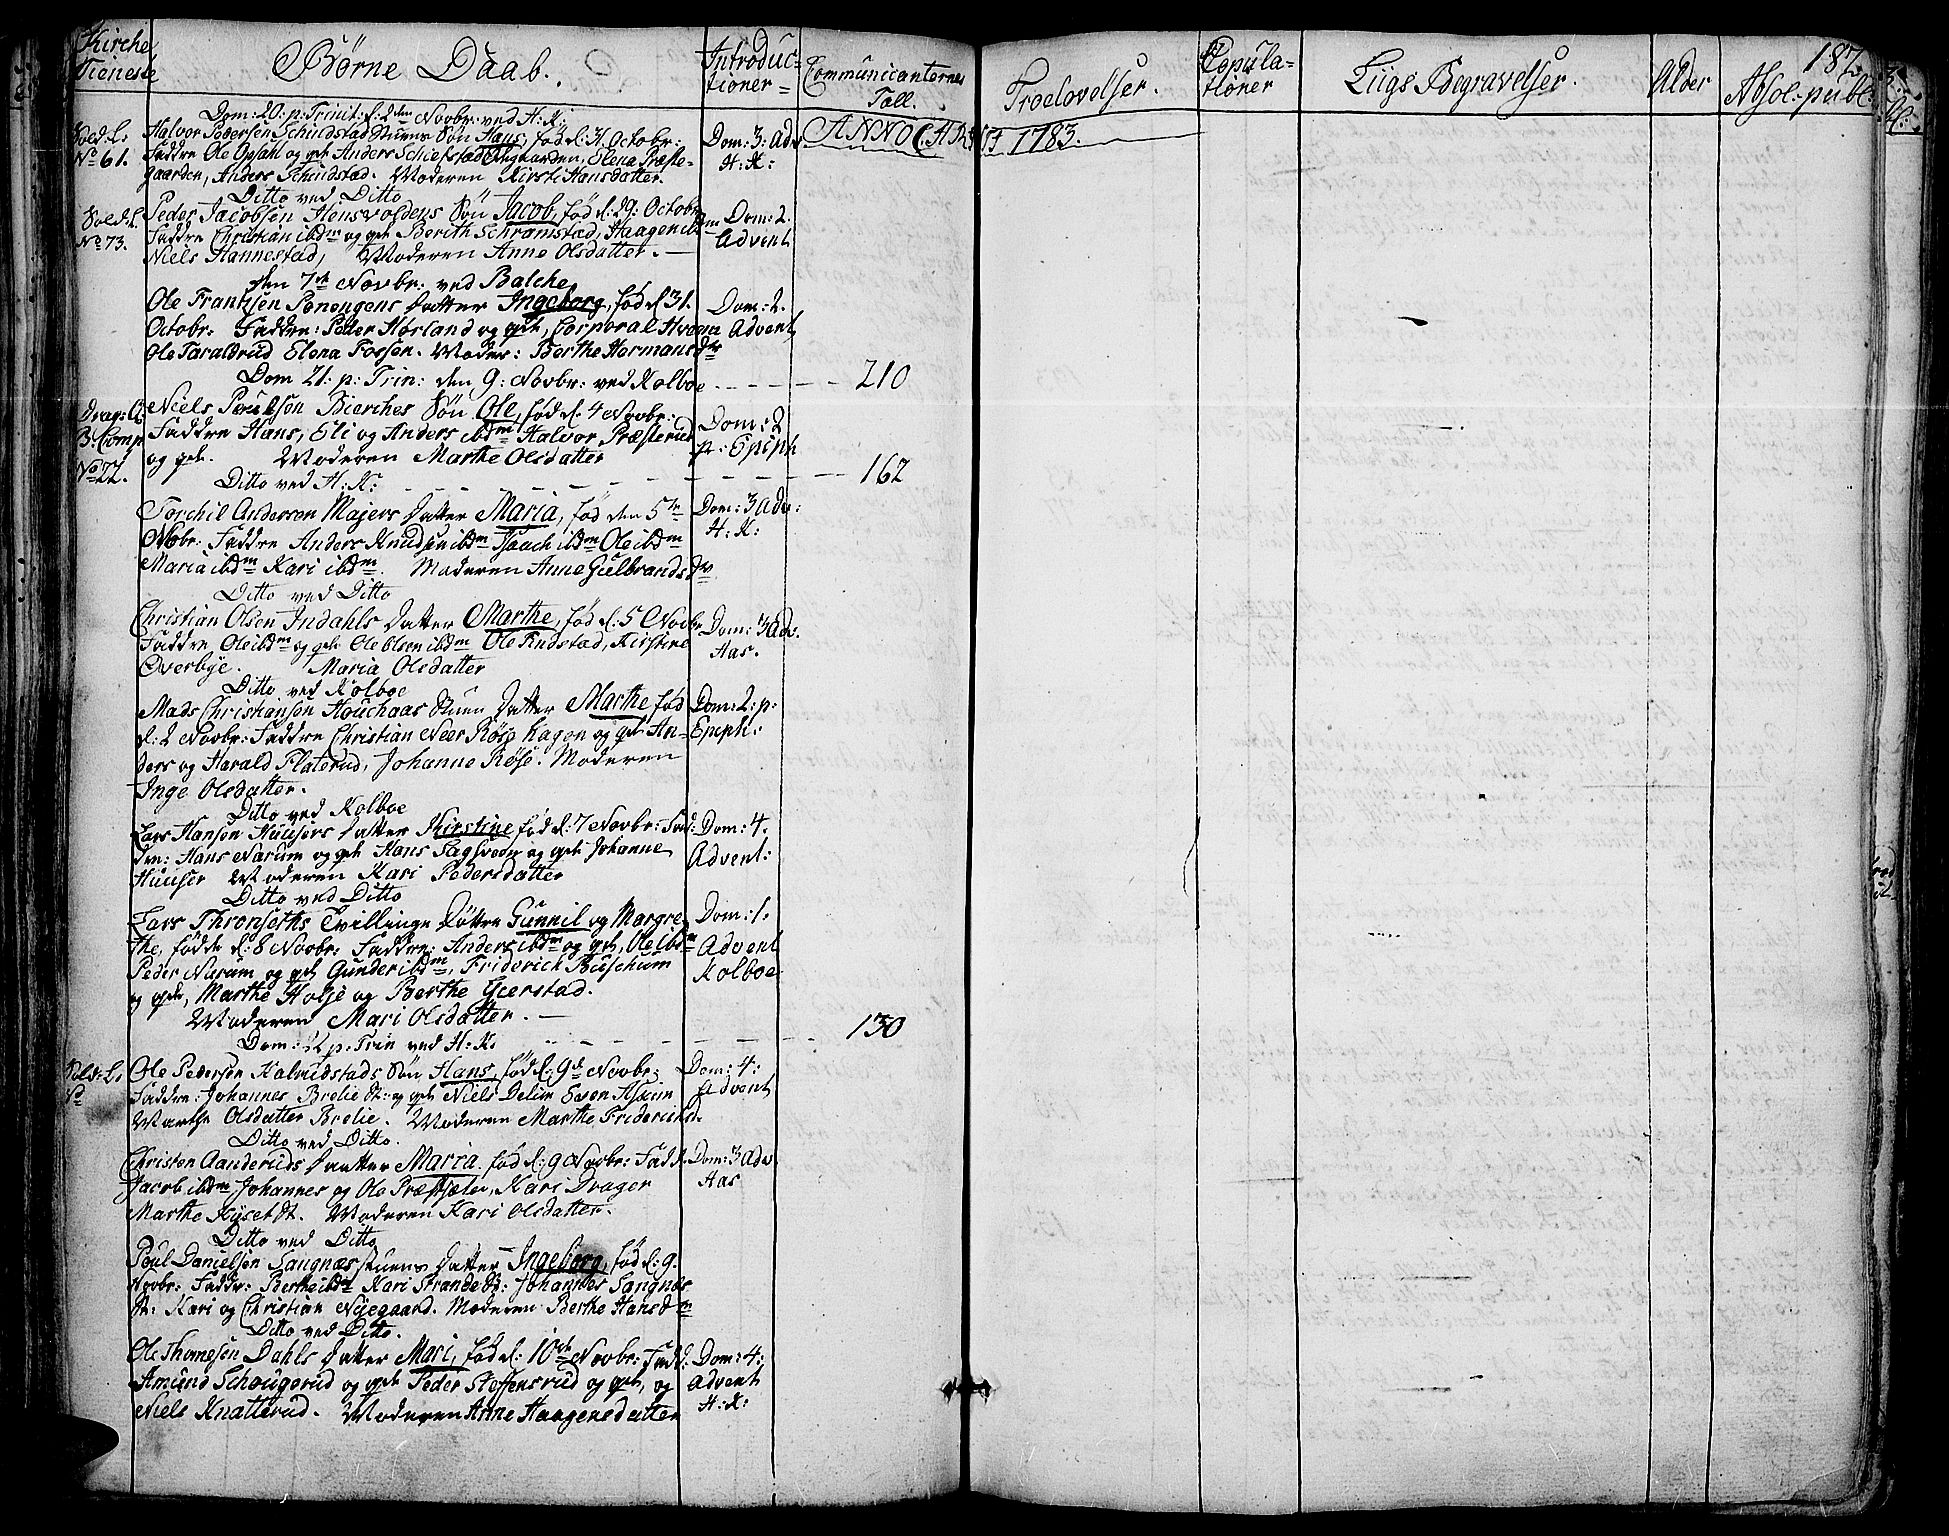 Kirche Tieneste
Børne Daab.
Introductioner
Communicanternes Tall.
Troelovelser.
Copulationer
Liigs Begravelser.
Alder
Absol: publ:
187
ANNO CHRISTI 1783.
Dom: 20. p: Trinit: d: 2den Novbr: ved H: K:
Sold: L: No 61.
Halvor Pedersen Schindstad Stuens Søn Hans, fød d: 31 Octobr:
Faddre Ole Opsahl og qvt Anders Schiefstad, Elena Præste-
gaarden, Anders Schindstad. Moderen Kirsti Hansdatter.
Dom: 3: Adv H: K:
Ditto ved Ditto
Sold: L. No 73.
Peder Jacobsen Hensvoldens Søn Jacob, fød d: 29: Octobr
Faddre Christian ibdm og qvt Berith Schramstad, Haagen ibdm
Niels Hannestad, Moderen Anne Olsdatter.
Dom: 2. Advent
den 7de Novbr: ved Balche
Ole Frantzsen Ponengens Datter Ingeborg, fød d 31.
Octobr: Faddre: Peder Hørland og qvt, Corporal Hveem
Ole Taraldrud Elena Fossen. Moder: Berthe Hermansdr
Dom: 2. Advent
Dom 21: p: Trin: den 9: Novbr: ved Kolboe 210
No 22.
Niels Poulsen Bierches Søn Ole, fød d: 4 Novbr:
Faddre Hans, Eli og Anders ibdm Halvor Præsterud
og qvt. Moderen Marthe Olsdatter
Dom: 2 p: Epiph
Ditto ved H: K: 162
Torchil Andersen Majers Datter Maria, fød den 5te
Novbr: Faddre Anders Knudsen ibdm Isaach ibdm Ole ibdm
Maria ibdm Kari ibdm. Moderen Anne Gulbrandsdr
Dom: 3 Adv: H: K:
Ditto ved Ditto
Christian Olsen Indahls Datter Marthe, fød d: 5 Novbr
Faddre Ole ibdm og qvt Ole Olsen ibdm Ole Rudstad, Kirstine
Overbye. Maria Olsdatter
Dom: 3 Adv. Aas.
Ditto ved Kolboe
Mads Christiansen Houchaas Stuen Datter Marthe fød
d: 2 Novbr: Faddre Christian Neer Røise Hagen og qvt An-
ders og Harald Flaterud, Johanne Røse. Moderen
Inge Olsdatter.
Dom: 2: p: Epiph:
Ditto ved Kolboe
Lars Hansen Huusers Datter Kirstine fød d: 7 Novbr: Fad:
dre: Hans Narum og qvt Hans Sagsveen og qvt Johanne
Huuser Moderen Kari Pedersdatter
Dom: 4. Advent:
Ditto ved Ditto
Lars Thronseths Tvillinge Døttre Gunnil og Margre-
the, fødde d: 8 Novbr: Faddre: Anders ibdm og qvt, Ole ibdm
Peder Narum og qvt Gunder ibdm, Friderich Buschum
og qvt, Marthe Holje og Berthe Gierstad.
Moderen Mari Olsdatter.
Dom: 1: Advent Kolboe
Dom: 22 p: Trin ved H: K: 130
Sold: L: No
Ole Pedersen Kalrudstads Søn Hans, fød d: 9de Novbr:
Faddre: Johannes Brelie dt: og qvt Niels Delin Even Askim
Marthe Olsdatter Brelie. Moderen Marthe Friderichsd.
Dom: 4: Advent
Ditto ved Ditto.
Christen Aanderuds Datter Maria. fød d: 9 Novbr: Fadd.
Jacob ibdm Johannes og Ole Præstsæter, Kari Drager
Marthe Hyset dt. Moderen Kari Olsdatter.
Dom: 3 Adv. Aas
Ditto ved Ditto
Poul Danielsen Sangnæs stuens Datter Ingeborg, fød d: 9.
Novbr: Faddr: Berthe ibdm Kari Strande dt: Johannes Sangnæs
dt: Kari og Christian Nyegaard. Moderen Berthe Hansdr
Ditto ved Ditto.
Ole Thomesen Dahls Datter Mari, fød d: 10de Novbr: Fadd:
Amund Schougerud og qvt Peder Steffensrud og qvt, og
Niels Knatterud. Moderen Anne Haagensdatter
Dom: 4: Advent H: K: